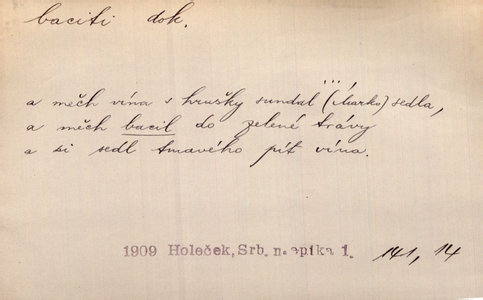 baciti dok.
a měch vína s hrušky sundal (... Marko) sedla,
a měch bacil do zelené trávy
a si sedl tmavého pít vína.
1909 Holeček, Srb. n. epika 1. 141, 14